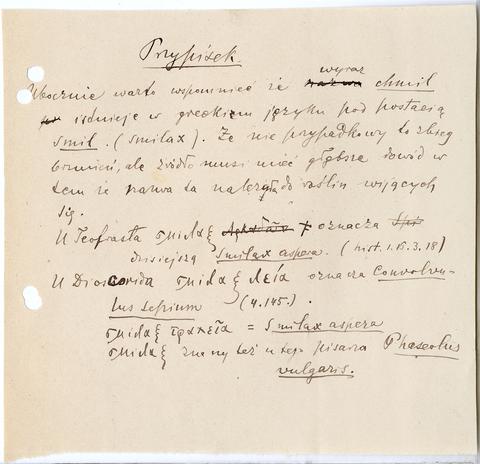 Przypisek.
wyraz
Ubocznie warto wspomnieć że nazwa chmil
istnieje w greckiem języku pod postacią
smil. (smilax). Że nie przypadkowy to zbieg
brzmień, ale źródło musi mieć głębsze dowód w
tem że nazwa ta należy do roślin wijących
się.
U Teofrasta σμιλαξ oznacza
dzisiejszą Smilax aspera. (hist. 1.15.3.18)
U Dioscorida σμιλαξ λεία oznacza Convolvu-
lus sepium (4.145.).
σμιλαξ τραχεῖα = Smilax aspera
σμιλαξ znany też u tego pisarza Phaseolus
vulgaris.